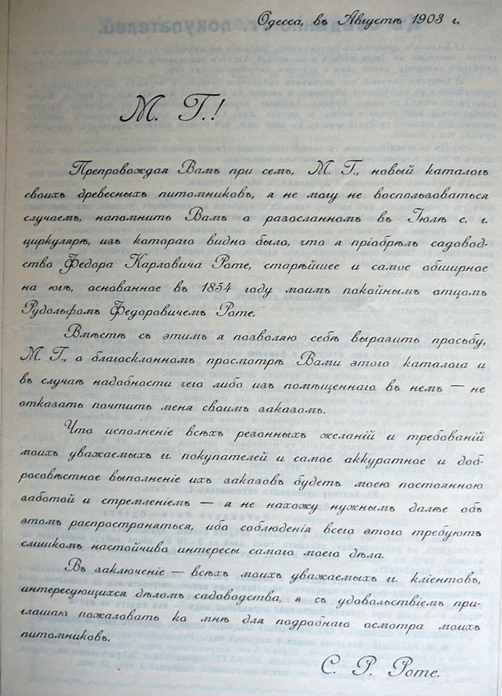 Одесса, въ Августѣ 1903 г.
М. Г.!
Препровождая Вамъ при семъ, М. Г., новый каталогъ
своихъ древесныхъ питомниковъ, я не могу не воспользоваться
случаемъ, напомнить Вамъ о разосланномъ въ Іюлѣ с. г.
циркулярѣ, изъ котораго видно было, что я пріобрѣлъ садовод-
ство Федора Карловича Роте, старѣйшее и самое обширное
на югѣ, основанное въ 1854 году моимъ покойнымъ отцомъ
Рудольфомъ Федоровичемъ Роте.
Вмѣстѣ съ этимъ я позволяю себѣ выразить просьбу,
М. Г., о благосклонномъ просмотрѣ Вами этого каталога и
въ случаѣ надобности чего либо изъ помѣщеннаго въ немъ — не
отказать почтить меня своимъ заказомъ.
Что исполненіе всѣхъ резонныхъ желаній и требованій
моихъ уважаемыхъ и покупателей и самое аккуратное и доб-
росовѣстное выполненіе ихъ заказовъ будетъ моею постоянною
заботой и стремленіемъ — я не нахожу нужнымъ далѣе объ
этомъ распространяться, ибо соблюденія всего этого требуютъ
слишкомъ настойчиво интересы самаго моего дѣла.
Въ заключеніе — всѣхъ моихъ уважаемыхъ и кліентовъ,
интересующихся дѣломъ садоводства, я съ удовольствіемъ при-
глашаю пожаловать ко мнѣ для подробнаго осмотра моихъ
питомниковъ.
С. Р. Роте.